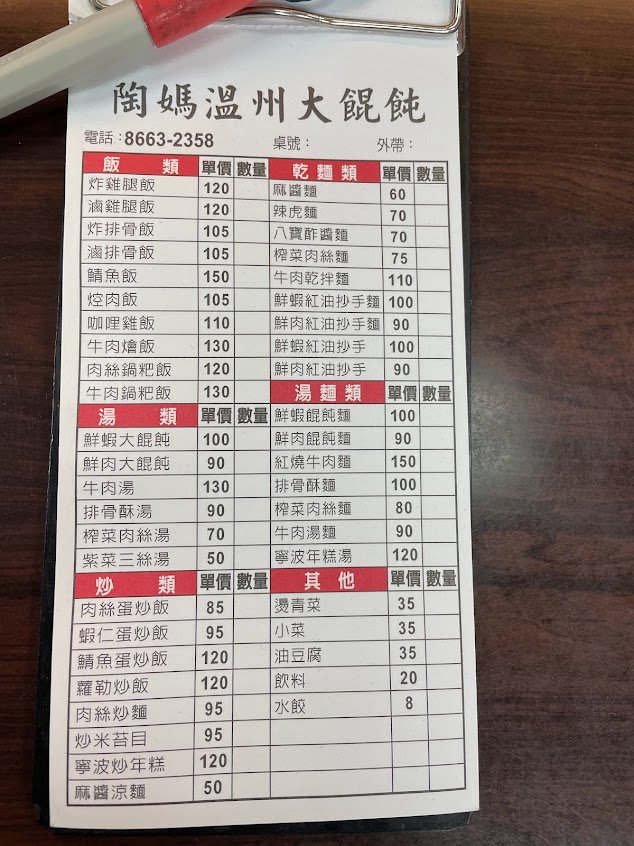 陶媽溫州大餛飩
電話：8663-2358 桌號： 外帶：
飯類 單價 數量
炸雞腿飯 120
滷雞腿飯 120
炸排骨飯 105
滷排骨飯 105
鯖魚飯 150
焢肉飯 105
咖哩雞飯 110
牛肉燴飯 130
肉絲鍋粑飯 120
牛肉鍋粑飯 130
湯類 單價 數量
鮮蝦大餛飩 100
鮮肉大餛飩 90
牛肉湯 130
排骨酥湯 90
榨菜肉絲湯 70
紫菜三絲湯 50
炒類 單價 數量
肉絲蛋炒飯 85
蝦仁蛋炒飯 95
鯖魚蛋炒飯 120
蘿勒炒飯 120
肉絲炒麵 95
炒米苔目 95
寧波炒年糕 120
麻醬涼麵 50
乾麵類 單價 數量
麻醬麵 60
辣虎麵 70
八寶酢醬麵 70
榨菜肉絲麵 75
牛肉乾拌麵 110
鮮蝦紅油抄手麵 100
鮮肉紅油抄手麵 90
鮮蝦紅油抄手 100
鮮肉紅油抄手 90
湯麵類 單價 數量
鮮蝦餛飩麵 100
鮮肉餛飩麵 90
紅燒牛肉麵 150
排骨酥麵 100
榨菜肉絲麵 80
牛肉湯麵 90
寧波年糕湯 120
其他 單價 數量
燙青菜 35
小菜 35
油豆腐 35
飲料 20
水餃 8